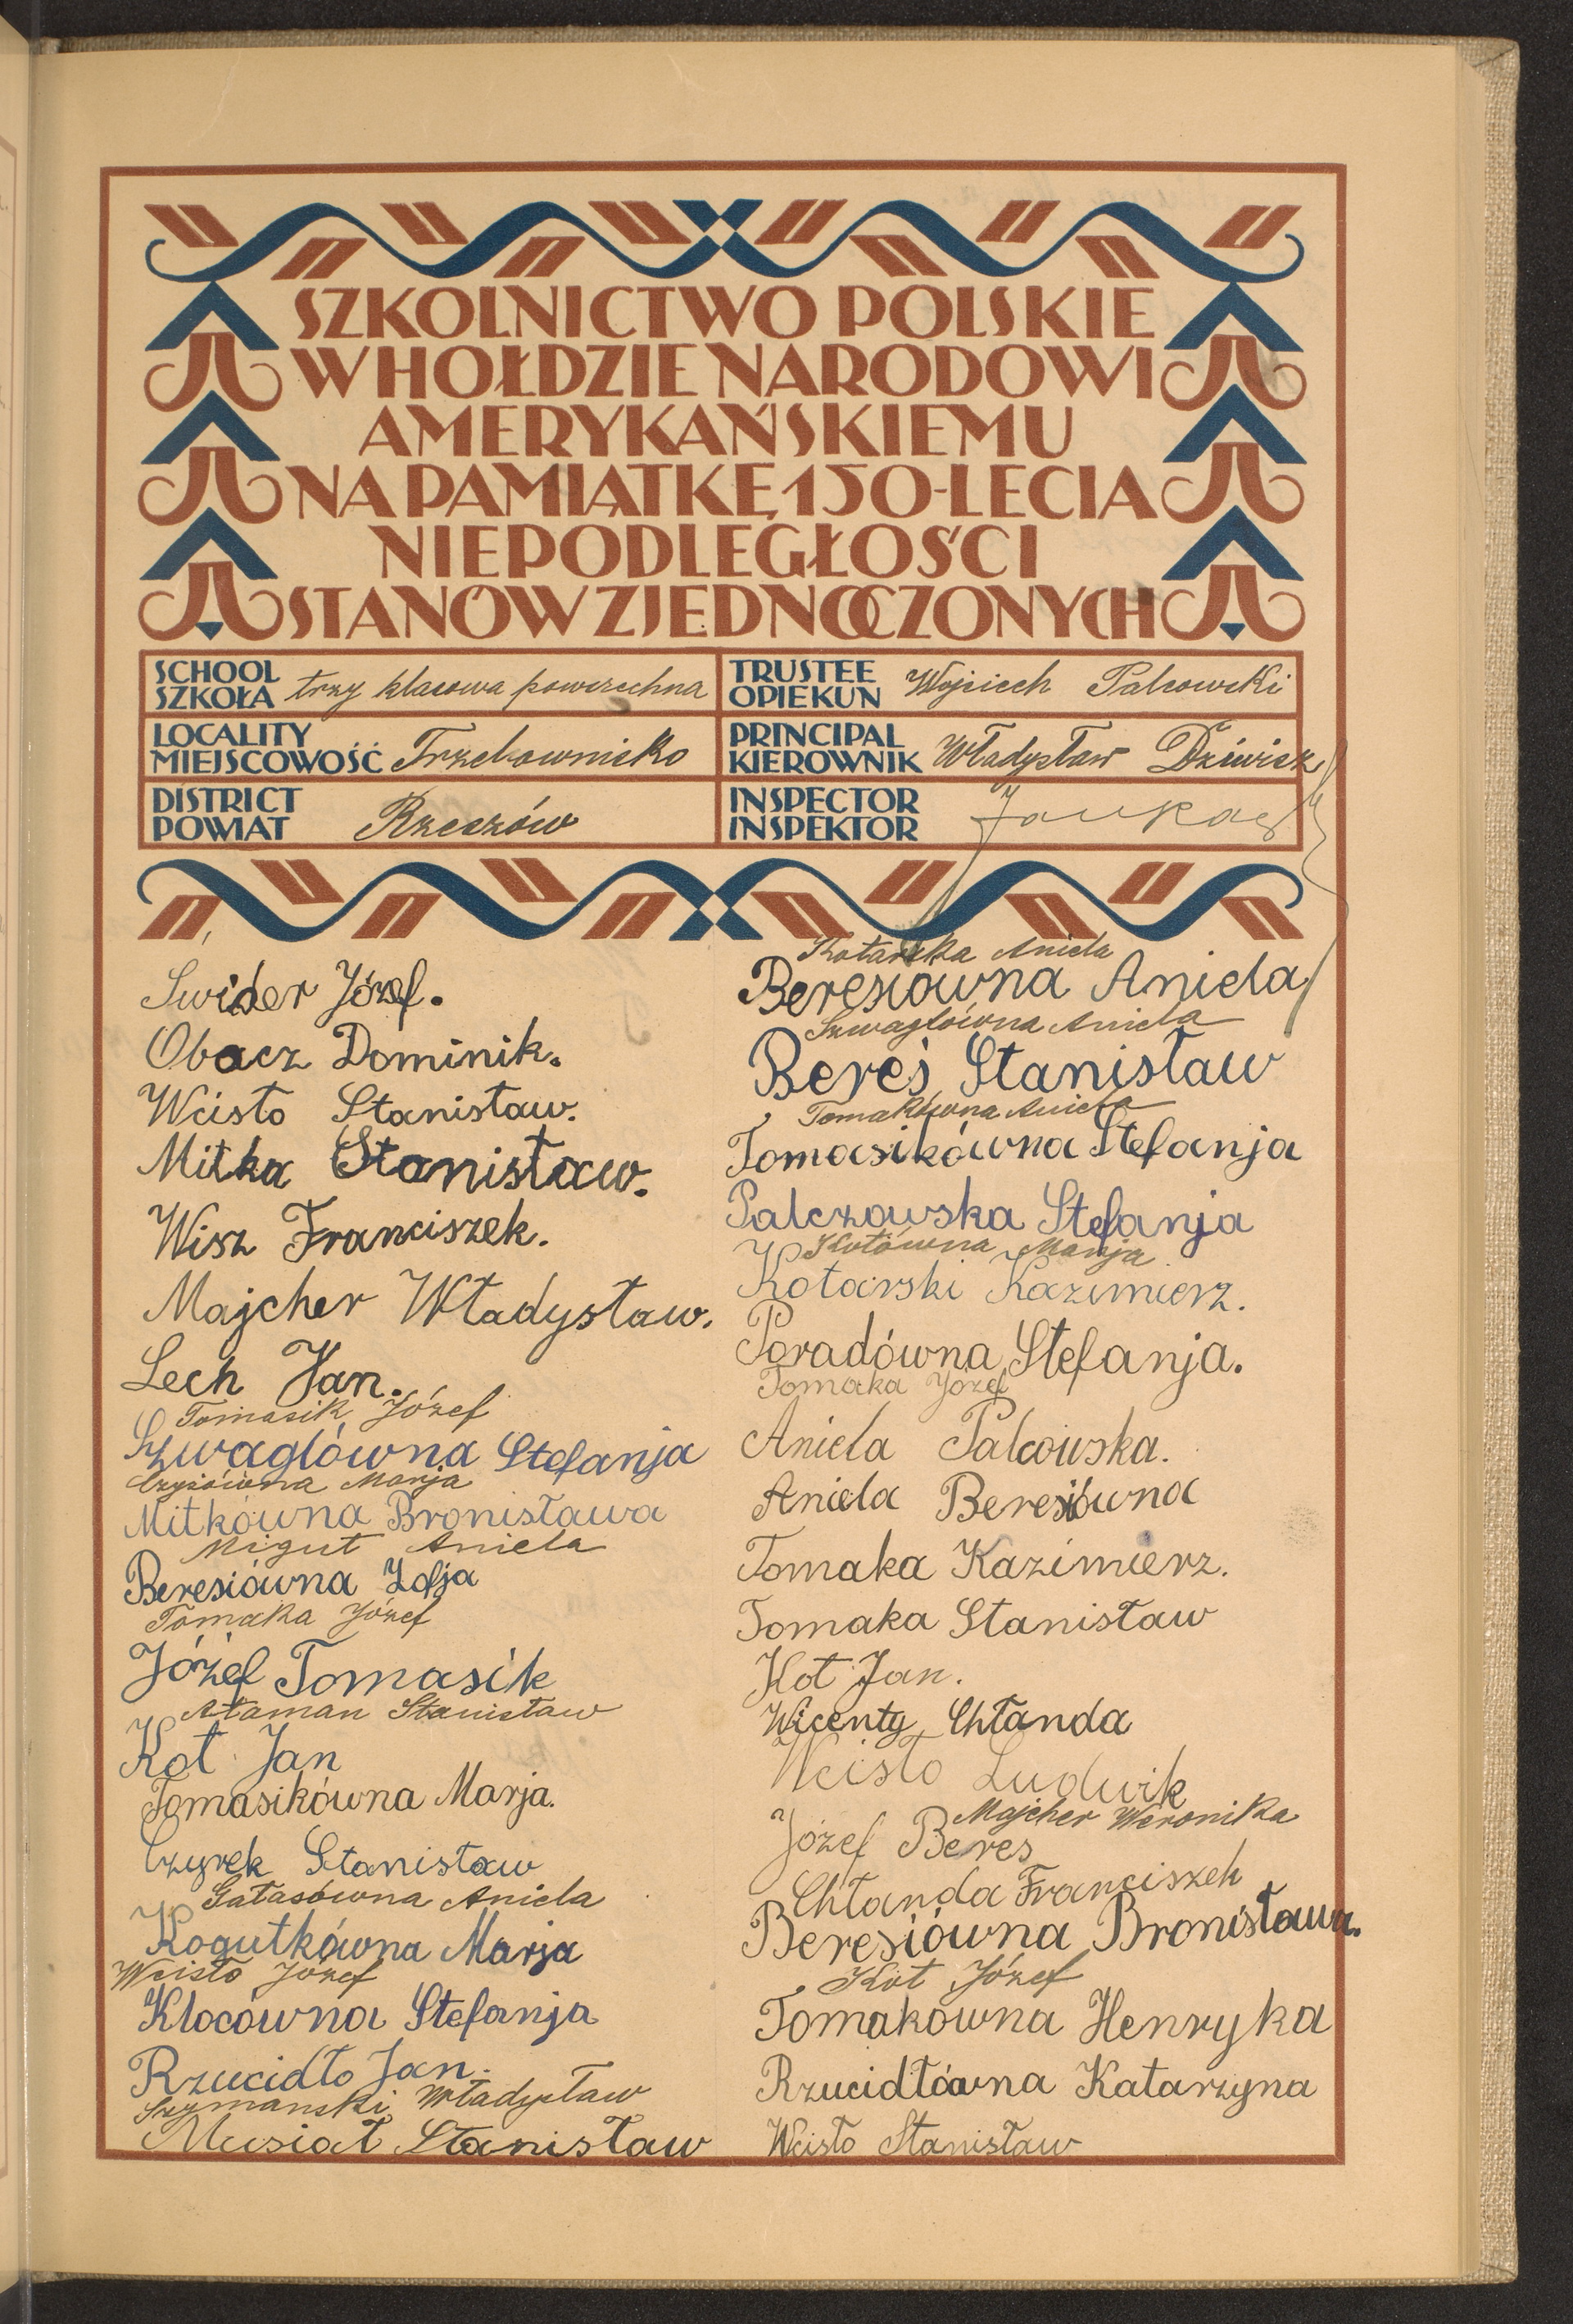 SZKOLNICTWO POLSKIE
W HOŁDZIE NARODOWI
AMERYKAŃSKIEMU
NA PAMIĄTKĘ 150-LECIA
NIEPODLEGŁOŚCI
STANÓW ZJEDNOCZONYCH
SCHOOL
SZKOŁA trzy klasowa powszechna
TRUSTEE
OPIEKUN Wojciech Palcowski
LOCALITY
MIEJSCOWOŚĆ Trzebownisko
PRINCIPAL
KIEROWNIK Władysław Dziwisz
DISTRICT
POWIAT Rzeszów
INSPECTOR
INSPEKTOR
Świder Józef.
Obacz Dominik.
Wcisło Stanisław.
Mitka Stanisław.
Wisz Franciszek.
Majcher Władysław.
Lech Jan.
Tomasik Józef
Szwaglówna Stefanja
Czyżówna Marja
Mitkówna Bronisława
Migut Aniela
Beresiówna Zofja
Tomaka Józef
Józef Tomasik
Ataman Stanisław
Kot Jan
Tomasikówna Marja.
Czyrek Stanisław
Gałasówna Aniela
Kogutkówna Marja
Wcisło Józef
Klocówna Stefanja
Rzucidło Jan.
Szymanski Władysław
Musiał Stanisław
Kotarska Aniela
Beresiówna Aniela
Szwaglówna Aniela
Bereś Stanisław
Tomakówna Aniela
Tomasikówna Stefanja
Palczowska Stefanja
Kotówna Marja
Kotarski Kazimierz.
Poradówna Stefanja.
Tomaka Józef
Aniela Palcowska.
Aniela Beresiówna
Tomaka Kazimierz.
Tomaka Stanisław
Kot Jan.
Wicenty Chłanda
Wcisło Ludwik
Majcher Weronika
Józef Beres
Chłanda Franciszek
Beresiówna Bronisława.
Kot Józef
Tomakówna Henryka
Rzucidłówna Katarzyna
Wcisło Stanisław